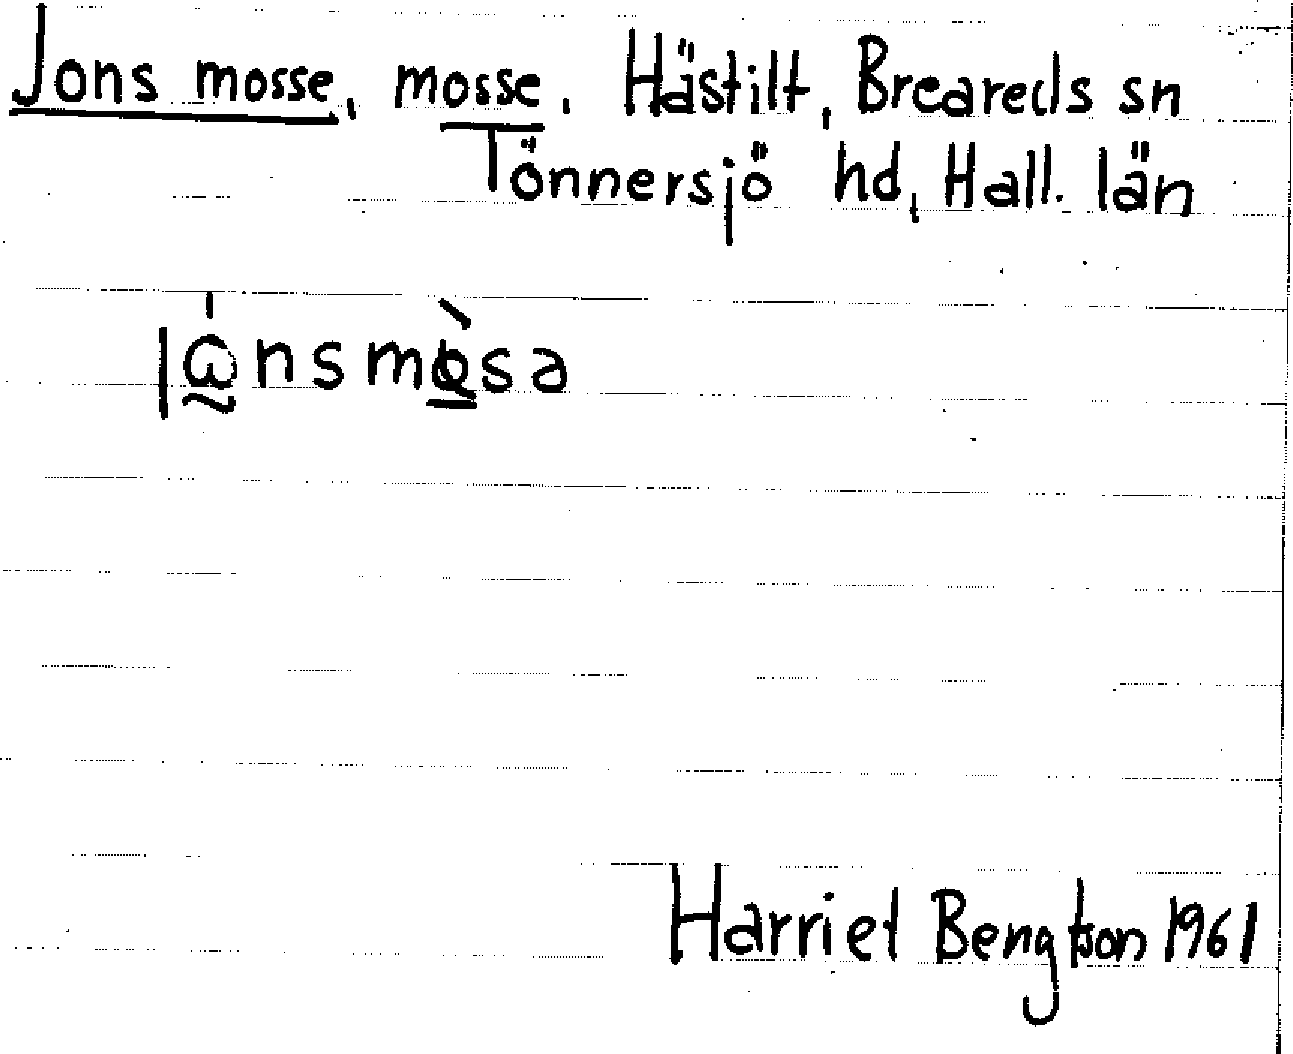 Jons mosse, mosse. Hästilt, Breareds sn
Tönnersjö hd, Hall. län
Harriet Bengtson 1961